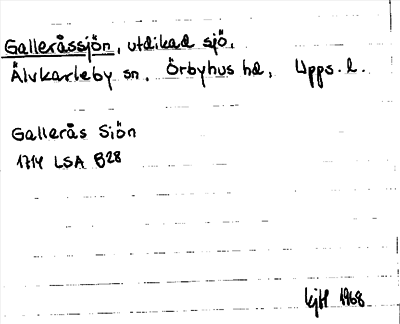 Galleråssjön, utdikad sjö,
Älvkarleby sn, Örbyhus hd, Upps. l.
Gallerås Siön
1714 LSA B28
kjH 1968